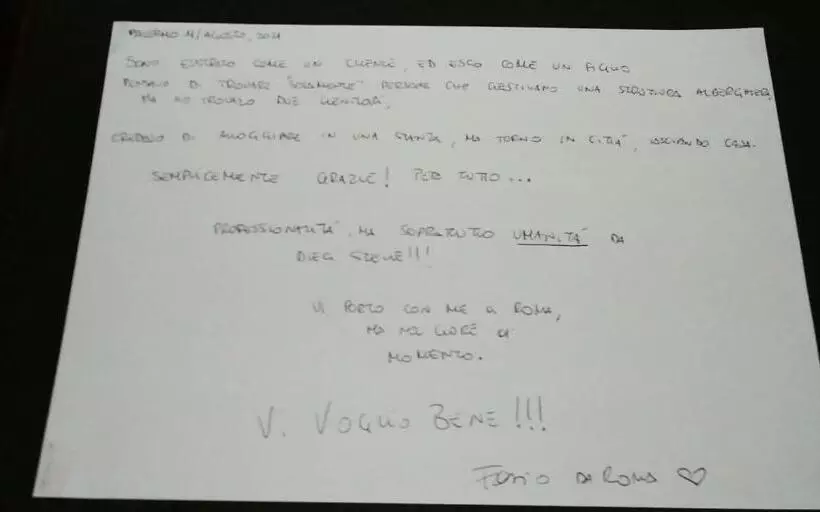 PALERMO 11/AGOSTO, 2021
SONO ENTRATO COME UN CLIENTE, ED ESCO COME UN FIGLIO
PENSAVO DI TROVARE "SOLAMENTE" PERSONE CHE GESTIVANO UNA STRUTTURA ALBERGHIERA,
MA HO TROVATO DUE GENITORI,
CREDEVO DI ALLOGGIARE IN UNA STANZA, MA TORNO IN CITTÀ, LASCIANDO CASA.
SEMPLICEMENTE GRAZIE! PER TUTTO...
PROFESSIONALITÀ, MA SOPRATUTTO UMANITÀ DA
DIECI STELLE!!!
VI PORTO CON ME A ROMA,
MA NEL CUORE DI
MOMENTO.
V. VOGLIO BENE!!!
DA ROMA ♡